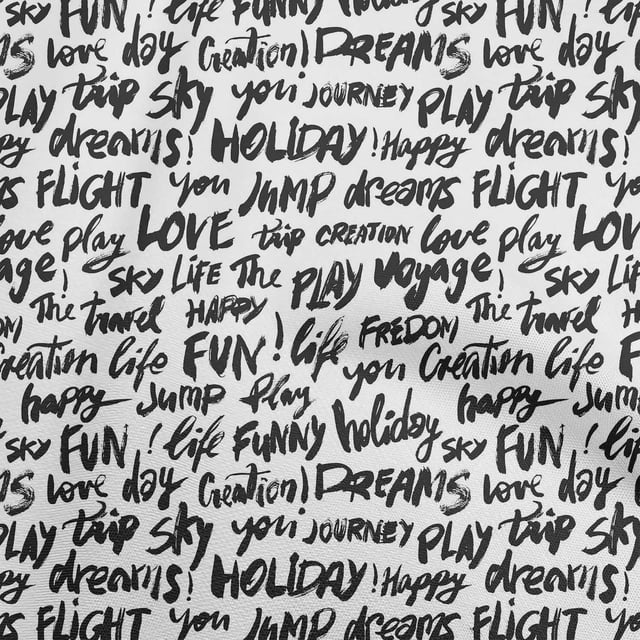 sky FUN! life FUNNY holiday sky FUN! life
love day Creation! DREAMS love day
PLAY trip sky you JOURNEY PLAY trip sky
dreams! HOLIDAY! Happy dreams!
FLIGHT you JUMP dreams FLIGHT you
love play LOVE trip CREATION love play LOVE
sky LIFE The PLAY voyage! sky LIFE
The travel HAPPY FREDOM The travel
Creation life FUN! life you Creation life
happy JUMP play happy JUMP
sky FUN! life FUNNY holiday sky FUN! life
love day Creation! DREAMS love day
PLAY trip sky you JOURNEY PLAY trip sky
dreams! HOLIDAY! Happy dreams!
FLIGHT you JUMP dreams FLIGHT you